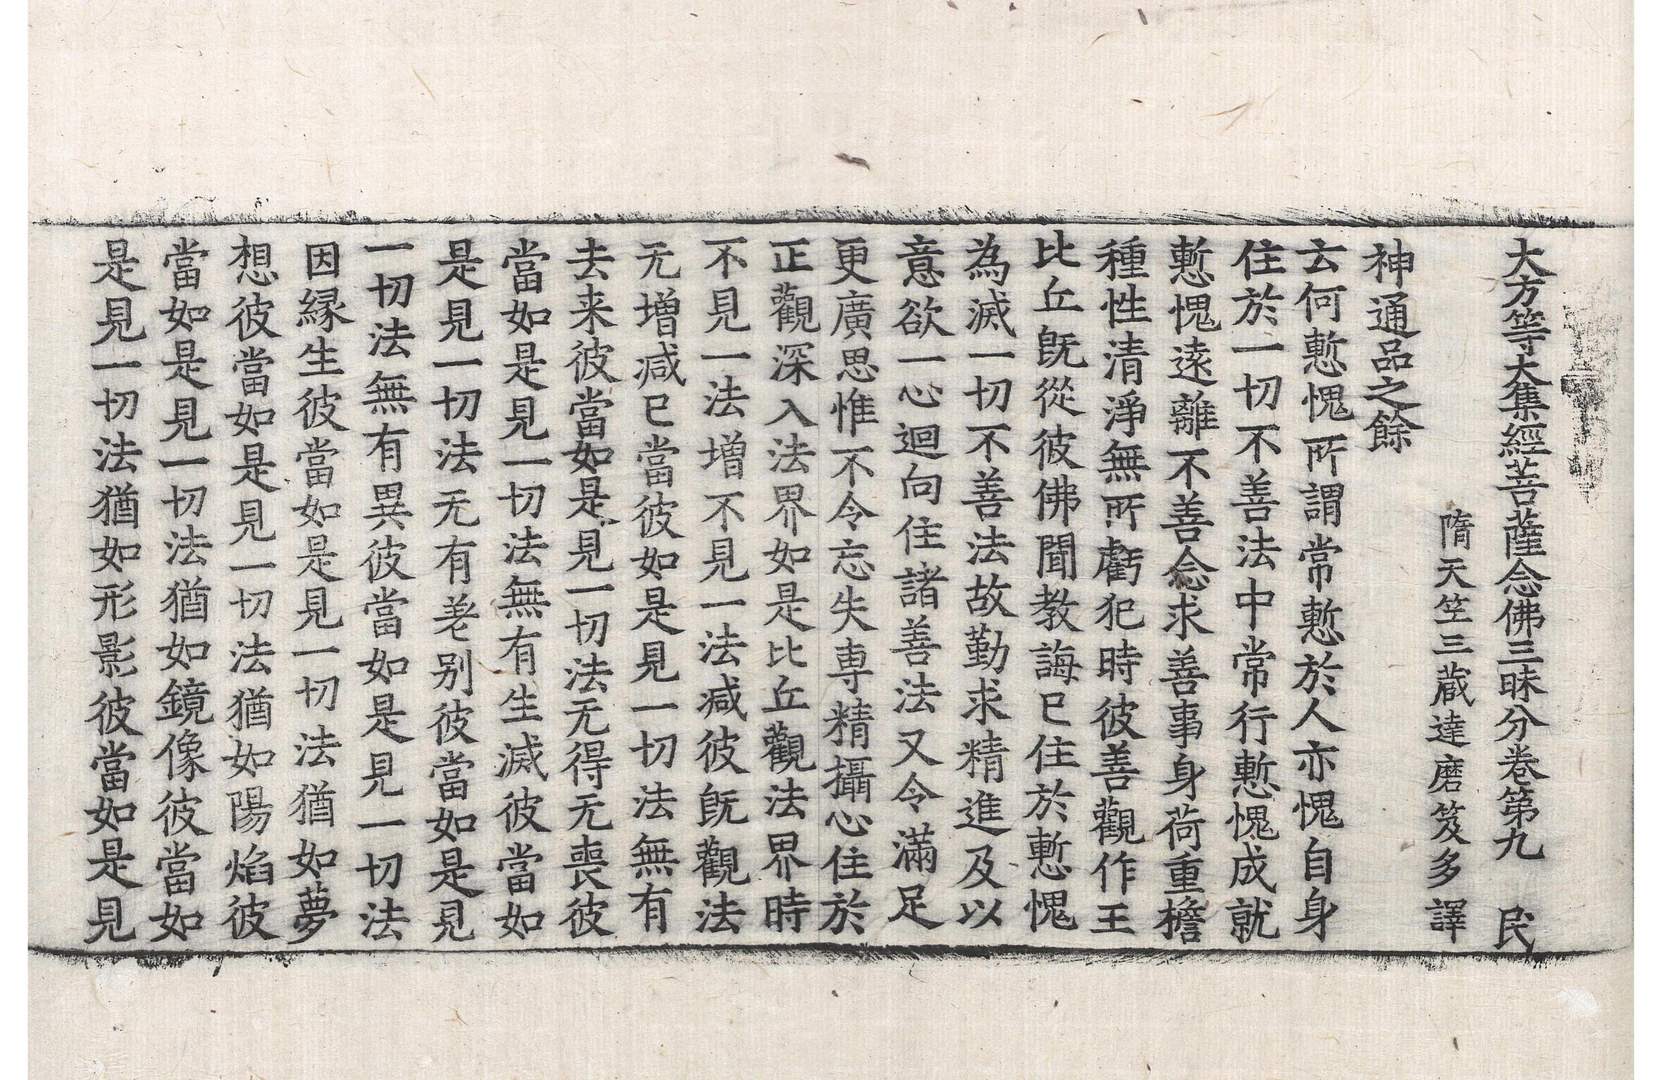 大方等大集經菩薩念佛三昧分卷第九　民
隋天竺三藏達磨笈多譯
神通品之餘
云何慙愧所謂常慙於人亦愧自身
住於一切不善法中常行慙愧成就
慙愧遠離不善念求善事身荷重擔
種性清淨無所虧犯時彼善觀作王
比丘既從彼佛聞教誨已住於慙愧
為滅一切不善法故勤求精進及以
意欲一心迴向住諸善法又令滿足
更廣思惟不令忘失專精攝心住於
正觀深入法界如是比丘觀法界時
不見一法增不見一法减彼既觀法
无增减已當彼如是見一切法無有
去来彼當如是見一切法无得无喪彼
當如是見一切法無有生滅彼當如
是見一切法无有差别彼當如是見
一切法無有異彼當如是見一切法
因緣生彼當如是見一切法猶如夢
想彼當如是見一切法猶如陽焰彼
當如是見一切法猶如鏡像彼當如
是見一切法猶如形影彼當如是見